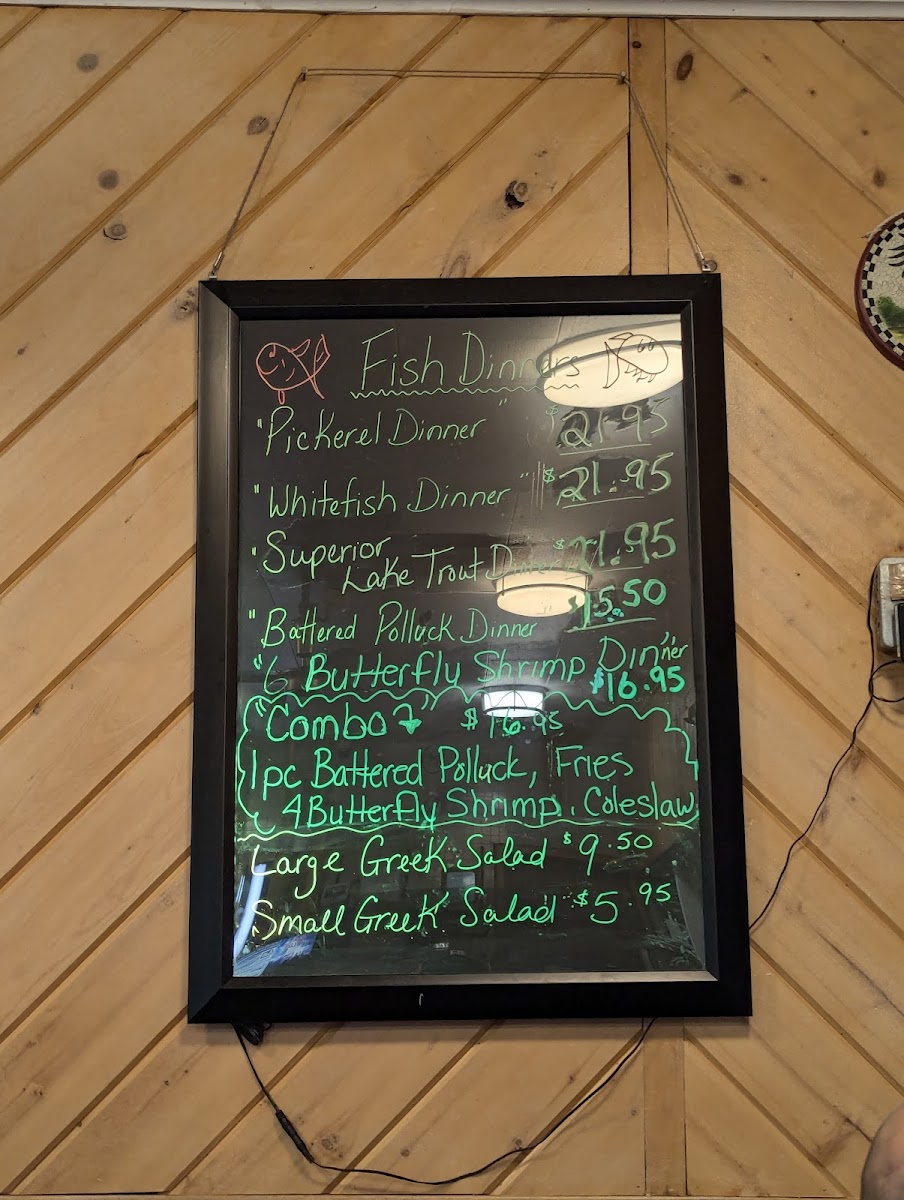 Fish Dinners
"Pickerel Dinner" $21.95
"Whitefish Dinner" $21.95
"Superior
Lake Trout Dinner $21.95
"Battered Polluck Dinner $15.50
"6 Butterfly Shrimp Dinner"
$16.95
"Combo" $16.95
1pc Battered Polluck, Fries
4 Butterfly Shrimp, Coleslaw
Large Greek Salad $9.50
Small Greek Salad $5.95